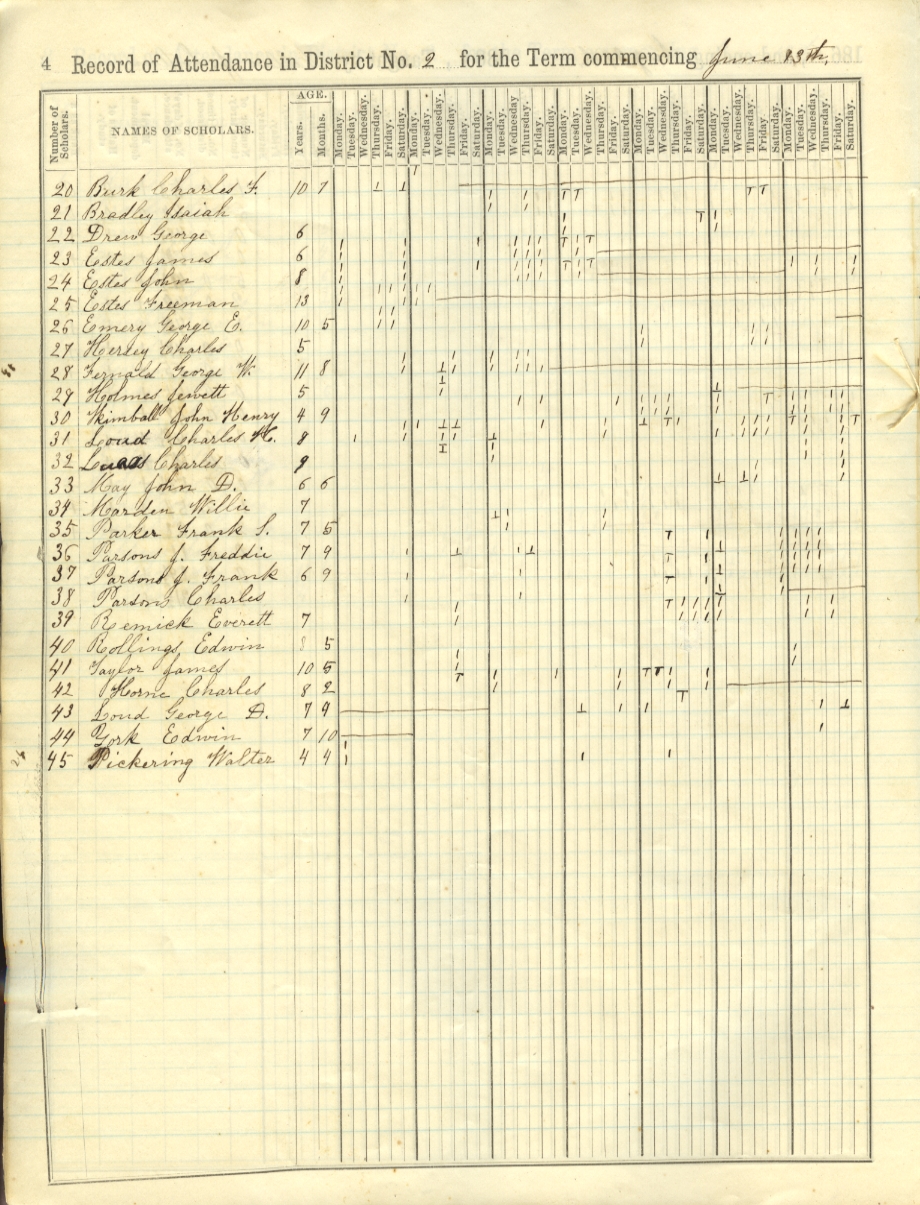 4 Record of Attendance in District No. 2 for the Term commencing June 13th,
Number of Scholars. NAMES OF SCHOLARS. AGE. Years. Months. Monday. Tuesday. Wednesday. Thursday. Friday. Saturday. Monday. Tuesday. Wednesday. Thursday. Friday. Saturday. Monday. Tuesday. Wednesday. Thursday. Friday. Saturday. Monday. Tuesday. Wednesday. Thursday. Friday. Saturday. Monday. Tuesday. Wednesday. Thursday. Friday. Saturday. Monday. Tuesday. Wednesday. Thursday. Friday. Saturday. Monday. Tuesday. Wednesday. Thursday. Friday. Saturday.
20 Burk Charles F. 10 7
21 Bradley Isaiah
22 Drew George 6
23 Estes James 6
24 Estes John 8
25 Estes Freeman 13
26 Emery George E. 10 5
27 Hersey Charles 5
28 Fernald George W. 11 8
29 Holmes Jewett 5
30 Kimball John Henry 4 9
31 Loud Charles H. 8
32 Lucas Charles 9
33 May John D. 6 6
34 Marden Willie 7
35 Parker Frank S. 7 5
36 Parsons J. Freddie 7 9
37 Parsons J. Frank 6 9
38 Parsons Charles
39 Remick Everett 7
40 Rollings Edwin 8 5
41 Taylor James 10 5
42 Horne Charles 8 2
43 Loud George D. 7 9
44 York Edwin 7 10
45 Pickering Walter 4 4